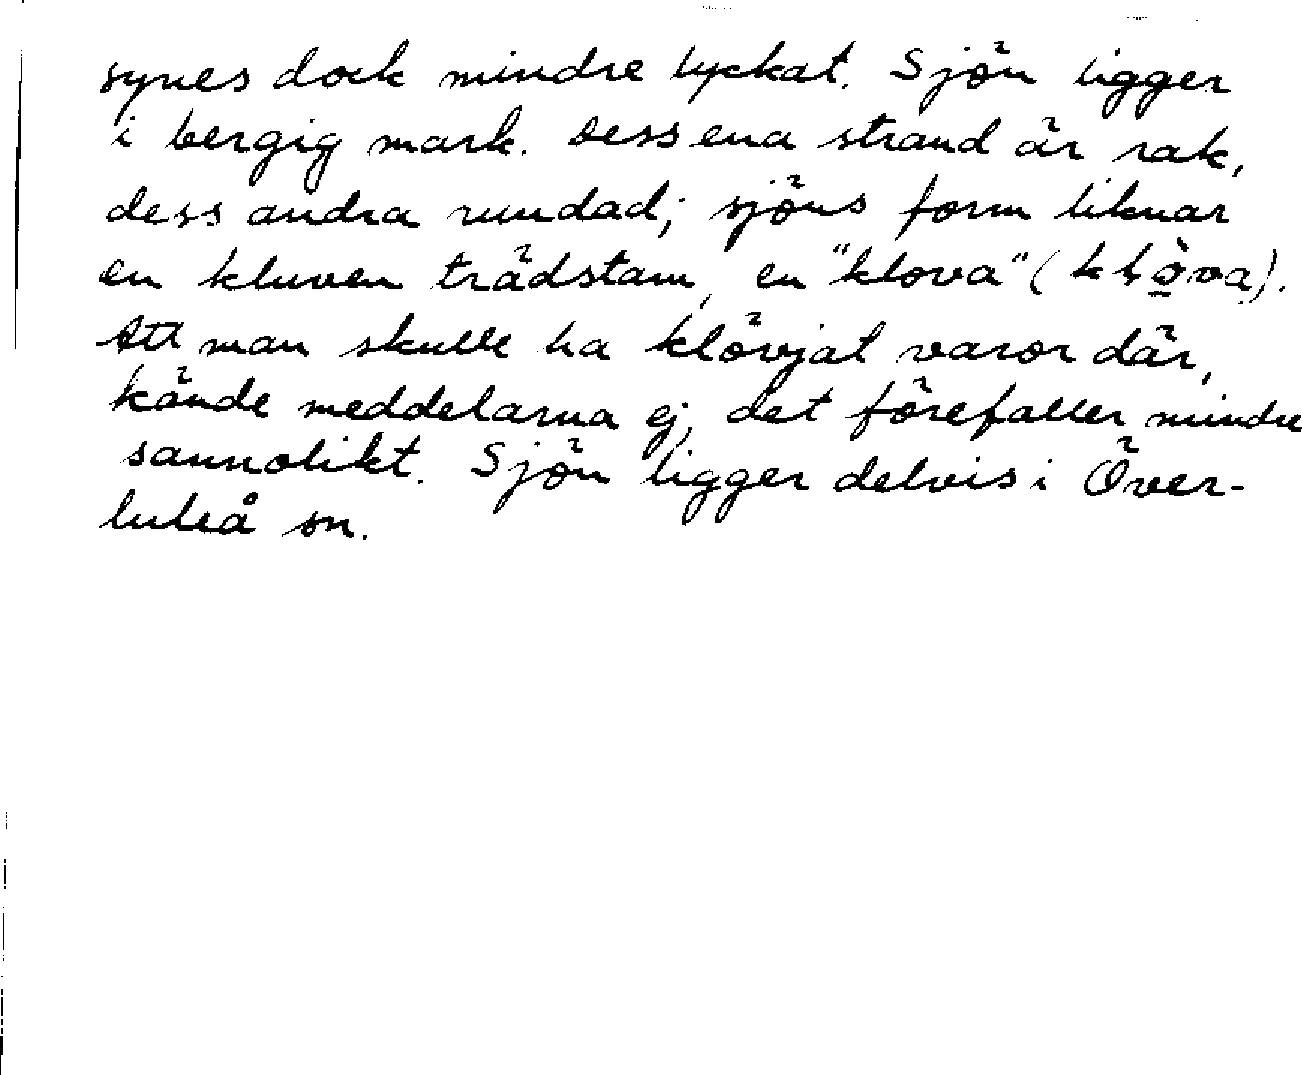 synes dock mindre lyckat. Sjön ligger
i bergig mark. Dess ena strand är rak,
dess andra rundad; sjöns form liknar
en kluven trädstam, en "klova" (klòva).
Att man skulle ha klövjat varor där,
kände meddelarna ej, det förefaller mindre
sannolikt. Sjön ligger delvis i Över-
luleå sn.